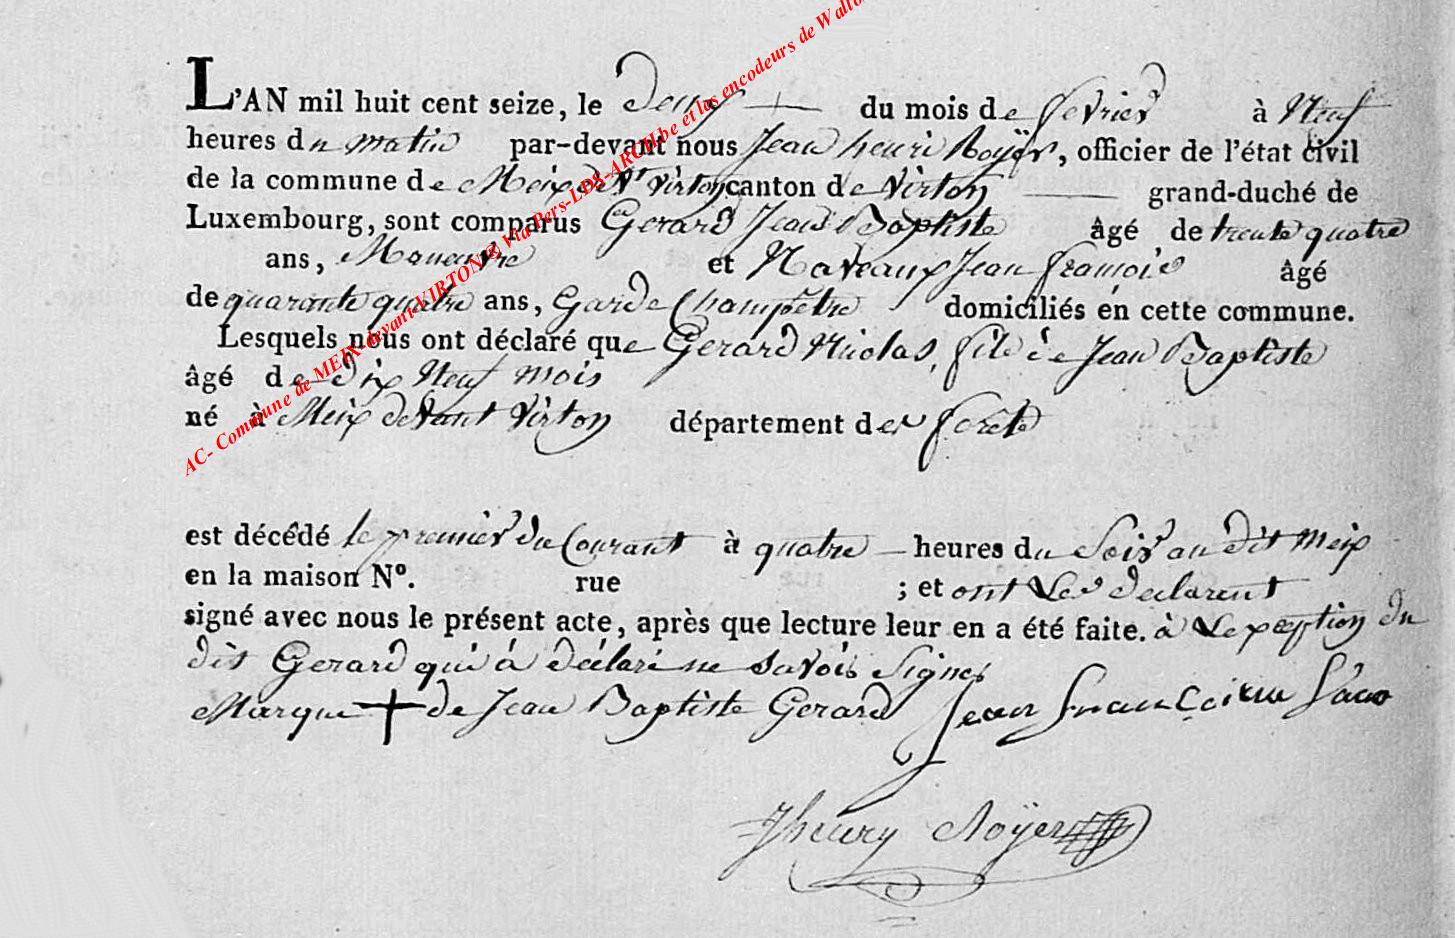 L'AN mil huit cent seize, le deux du mois de fevrier à Neuf
heures du matin par-devant nous Jean henri Royer, officier de l'état civil
de la commune de Meix dvt virton canton de virton grand-duché de
Luxembourg, sont comparus Gerard Jean Baptiste âgé de trente quatre
ans, Maneuvre et Naveaux Jean francois âgé
de quarante quatre ans, Garde Champêtre domiciliés en cette commune.
Lesquels nous ont déclaré que Gerard Nicolas, fils de Jean Baptiste
âgé de dix Neuf mois
né à Meix devant virton département des forêts
est décédé le premier du Courant à quatre heures du soir au dit Meix
en la maison N°. rue ; et ont Les declarent
signé avec nous le présent acte, après que lecture leur en a été faite. à Lexception du
dit Gerard qui à déclaré ne savoir signer
Marque de Jean Baptiste Gerard Jean
Jhenry Royer
AC- Commune de MEIX-devant-VIRTON @ Via Pers-LDS-ARCH.be et les encodeurs de Wallo